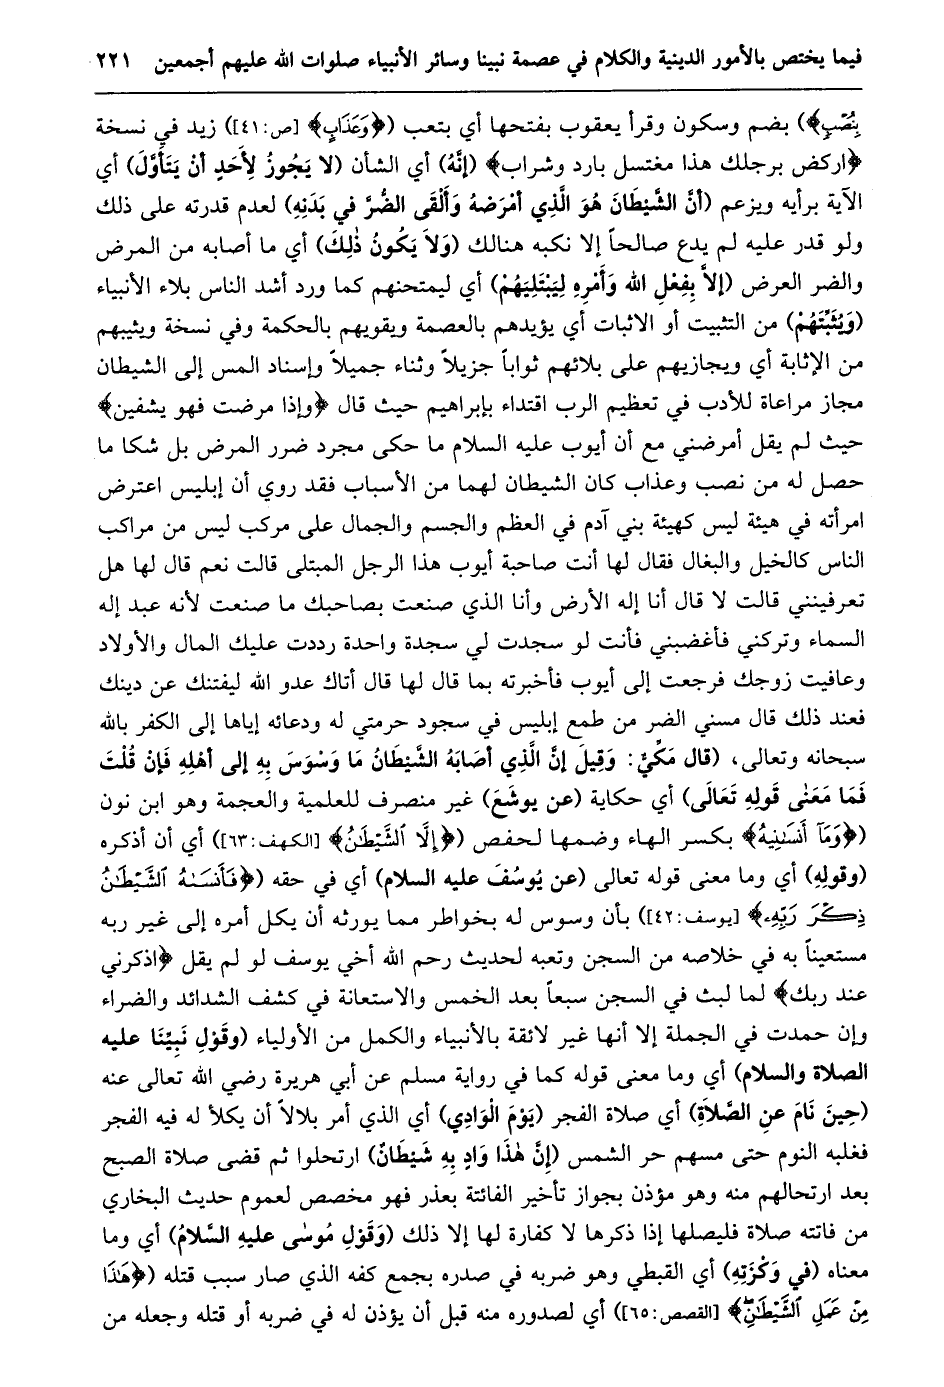 فيما يختص بالأمور الدينية والكلام في عصمة نبينا وسائر الأنبياء صلوات الله عليهم أجمعين ٢٢١
بِنُصْبٍ﴾) بضم وسكون وقرأ يعقوب بفتحها أي بتعب (﴿وَعَذَابٍ﴾ [ص:٤١]) زيد في نسخة
﴿اركض برجلك هذا مغتسل بارد وشراب﴾ (إِنَّهُ) أي الشأن (لا يَجُوزُ لِأَحَدٍ أنْ يَتَأَوَّلَ) أي
الآية برأيه ويزعم (أنَّ الشَّيطَانَ هُوَ الَّذِي أمْرَضَهُ وَأَلْقَى الضُّرَّ في بَدَنِهِ) لعدم قدرته على ذلك
ولو قدر عليه لم يدع صالحاً إلا نكبه هنالك (وَلاَ يَكُونُ ذٰلِكَ) أي ما أصابه من المرض
والضر العرض (إلاَّ بِفْعْلِ الله وَأمْرِهِ لِيَبْتَلِيَهُمْ) أي ليمتحنهم كما ورد أشد الناس بلاء الأنبياء
(وَيُثَبِّتَهُمْ) من التثبيت أو الاثبات أي يؤيدهم بالعصمة ويقويهم بالحكمة وفي نسخة ويثيبهم
من الإثابة أي ويجازيهم على بلائهم ثواباً جزيلاً وثناء جميلاً وإسناد المس إلى الشيطان
مجاز مراعاة للأدب في تعظيم الرب اقتداء بإبراهيم حيث قال ﴿وإذا مرضت فهو يشفين﴾
حيث لم يقل أمرضني مع أن أيوب عليه السلام ما حكى مجرد ضرر المرض بل شكا ما
حصل له من نصب وعذاب كان الشيطان لهما من الأسباب فقد روي أن إبليس اعترض
امرأته في هيئة ليس كهيئة بني آدم في العظم والجسم والجمال على مركب ليس من مراكب
الناس كالخيل والبغال فقال لها أنت صاحبة أيوب هذا الرجل المبتلى قالت نعم قال لها هل
تعرفينني قالت لا قال أنا إله الأرض وأنا الذي صنعت بصاحبك ما صنعت لأنه عبد إله
السماء وتركني فأغضبني فأنت لو سجدت لي سجدة واحدة رددت عليك المال والأولاد
وعافيت زوجك فرجعت إلى أيوب فأخبرته بما قال لها قال أتاك عدو الله ليفتنك عن دينك
فعند ذلك قال مسني الضر من طمع إبليس في سجود حرمتي له ودعائه إياها إلى الكفر بالله
سبحانه وتعالى، (قال مَكِّيٌ: وَقِيلَ إنَّ الَّذِي أصَابَهُ الشَّيطَانُ مَا وَسْوَسَ بِهِ إلى أهْلِهِ فَإنْ قُلْتَ
فَمَا مَعْنٰى قَولِهِ تَعَالَى) أي حكاية (عن يوشَعَ) غير منصرف للعلمية والعجمة وهو ابن نون
(﴿وَمَآ أَنسَىٰنِيهُ﴾ بكسر الهاء وضمها لحفص (﴿إِلَّا ٱلشَّيْطَٰنُ﴾ [الكهف:٦٣]) أي أن أذكره
(وقولِهِ) أي وما معنى قوله تعالى (عن يُوسُفَ عليه السلام) أي في حقه (﴿فَأَنسَىٰهُ ٱلشَّيْطَٰنُ
ذِكْرَ رَبِّهِۦ﴾ [يوسف:٤٢]) بأن وسوس له بخواطر مما يورثه أن يكل أمره إلى غير ربه
مستعيناً به في خلاصه من السجن وتعبه لحديث رحم الله أخي يوسف لو لم يقل ﴿اذكرني
عند ربك﴾ لما لبث في السجن سبعاً بعد الخمس والاستعانة في كشف الشدائد والضراء
وإن حمدت في الجملة إلا أنها غير لائقة بالأنبياء والكمل من الأولياء (وقَوْلِ نَبِيِّنَا عليه
الصلاة والسلام) أي وما معنى قوله كما في رواية مسلم عن أبي هريرة رضي الله تعالى عنه
(حِينَ نَامَ عنِ الصَّلاَةِ) أي صلاة الفجر (يَوْمَ الْوَادِي) أي الذي أمر بلالاً أن يكلأ له فيه الفجر
فغلبه النوم حتى مسهم حر الشمس (إنَّ هٰذَا وَادٍ بِهِ شَيطَانٌ) ارتحلوا ثم قضى صلاة الصبح
بعد ارتحالهم منه وهو مؤذن بجواز تأخير الفائتة بعذر فهو مخصص لعموم حديث البخاري
من فاتته صلاة فليصلها إذا ذكرها لا كفارة لها إلا ذلك (وَقَوْلِ مُوسٰى عليهِ السَّلامُ) أي وما
معناه (في وَكْزَتِهِ) أي القبطي وهو ضربه في صدره بجمع كفه الذي صار سبب قتله (﴿هَٰذَا
مِنْ عَمَلِ ٱلشَّيْطَٰنِۖ﴾ [القصص:٦٥]) أي لصدوره منه قبل أن يؤذن له في ضربه أو قتله وجعله من